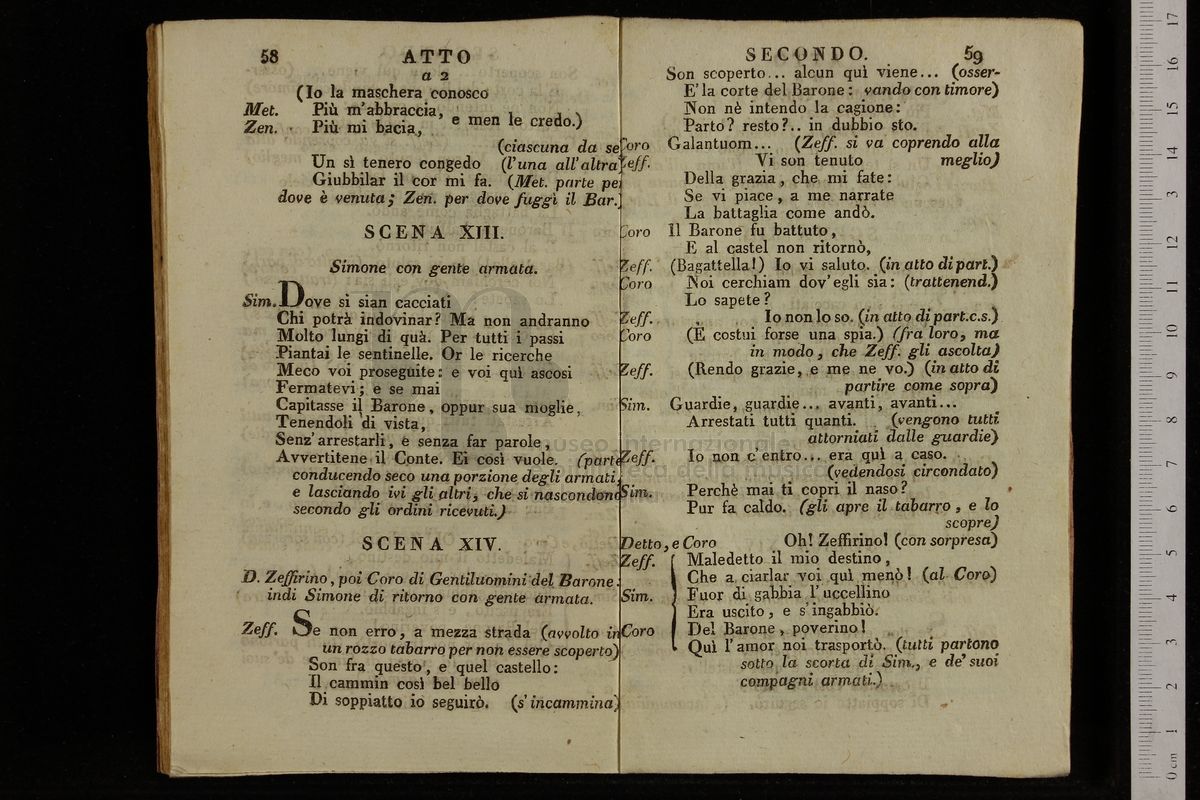 58
ATTO
a 2
(Io la maschera conosco
Met. Più m'abbraccia,
Zen. Più mi bacia, e men le credo.)
(ciascuna da se
Un sì tenero congedo (l'una all'altra
Giubbilar il cor mi fa. (Met. parte pe
dove è venuta; Zen. per dove fuggì il Bar.
SCENA XIII.
Simone con gente armata.
Sim. Dove si sian cacciati
Chi potrà indovinar? Ma non andranno
Molto lungi di quà. Per tutti i passi
Piantai le sentinelle. Or le ricerche
Meco voi proseguite: e voi quì ascosi
Fermatevi; e se mai
Capitasse il Barone, oppur sua moglie,
Tenendoli di vista,
Senz'arrestarli, e senza far parole,
Avvertitene il Conte. Ei così vuole. (parte
conducendo seco una porzione degli armati,
e lasciando ivi gli altri, che si nascondono
secondo gli ordini ricevuti.)
SCENA XIV.
D. Zeffirino, poi Coro di Gentiluomini del Barone:
indi Simone di ritorno con gente armata.
Zeff. Se non erro, a mezza strada (avvolto in
un rozzo tabarro per non essere scoperto)
Son fra questo, e quel castello:
Il cammin così bel bello
Di soppiatto io seguirò. (s'incammina)
SECONDO.
59
Son scoperto... alcun quì viene... (osser-
E' la corte del Barone: vando con timore)
Non nè intendo la cagione:
Parto? resto?.. in dubbio sto.
Coro Galantuom... (Zeff. si va coprendo alla
Zeff. Vi son tenuto meglio)
Della grazia, che mi fate:
Se vi piace, a me narrate
La battaglia come andò.
Coro Il Barone fu battuto,
E al castel non ritornò,
Zeff. (Bagattella!) Io vi saluto. (in atto di part.)
Coro Noi cerchiam dov'egli sia: (trattenend.)
Lo sapete?
Zeff. Io non lo so. (in atto di part. c.s.)
Coro (È costui forse una spia.) (fra loro, ma
in modo, che Zeff. gli ascolta)
Zeff. (Rendo grazie, e me ne vo.) (in atto di
partire come sopra)
Sim. Guardie, guardie... avanti, avanti...
Arrestati tutti quanti. (vengono tutti
attorniati dalle guardie)
Zeff. Io non c'entro... era quì a caso.
(vedendosi circondato)
Sim. Perchè mai ti copri il naso?
Pur fa caldo. (gli apre il tabarro, e lo
scopre)
Detto, e Coro Oh! Zeffirino! (con sorpresa)
Zeff. Maledetto il mio destino,
Che a ciarlar voi quì menò! (al Coro)
Sim. Fuor di gabbia l'uccellino
Era uscito, e s'ingabbiò.
Coro Del Barone, poverino!
Quì l'amor noi trasportò. (tutti partono
sotto la scorta di Sim., e de' suoi
compagni armati.)
museo internazionale
e biblioteca della musica
0 cm 1 2 3 4 5 6 7 8 9 10 11 12 13 14 15 16 17